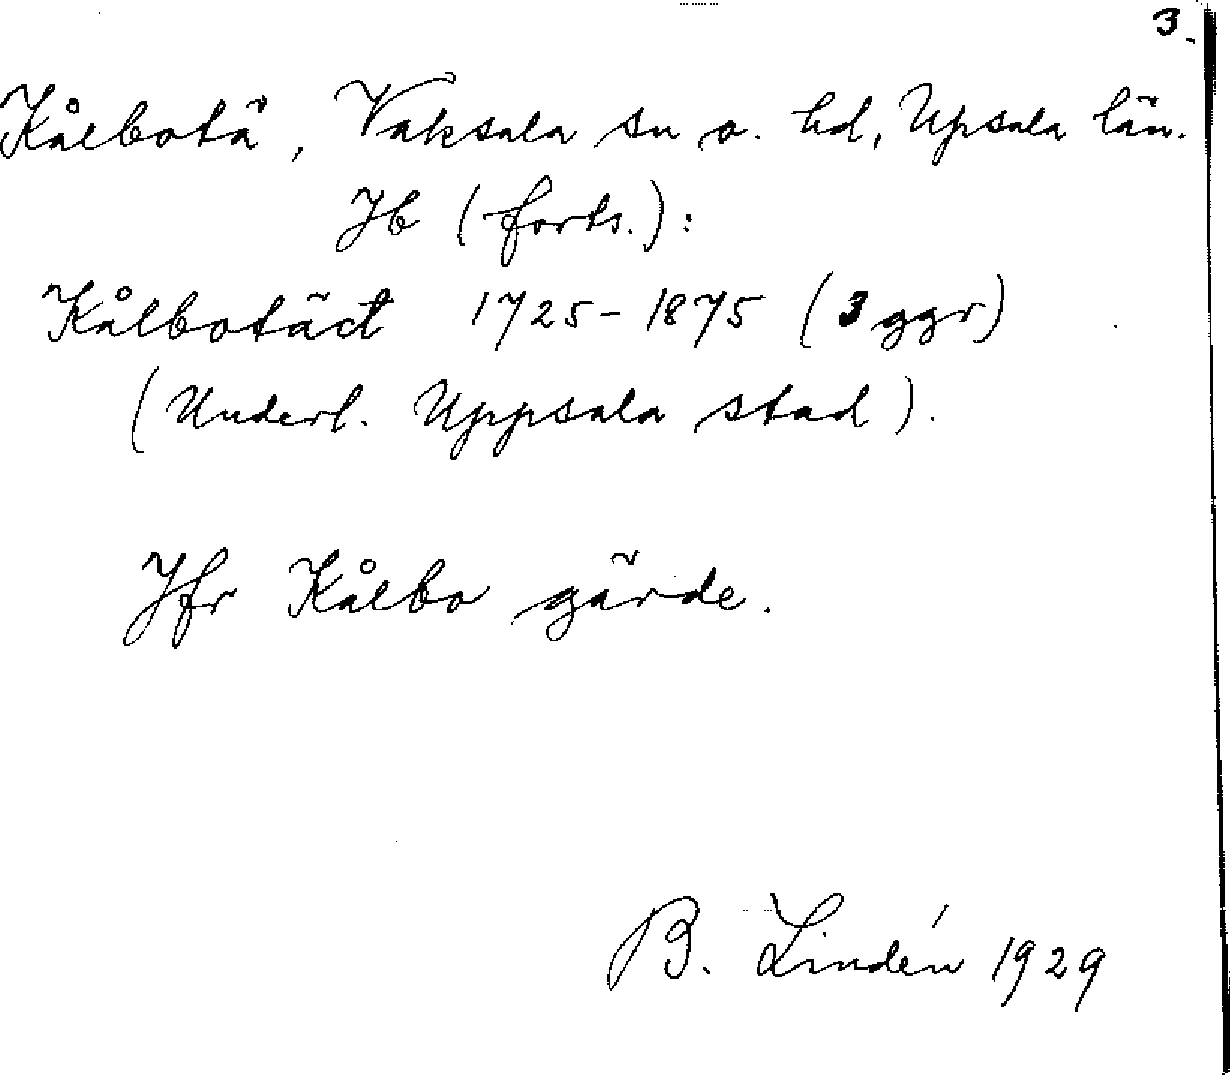 3.
Kålbotä, Vaksala sn o. hd, Upsala län.
Jb (forts.):
Kålbotäct 1725-1875 (3 ggr)
(Underl. Uppsala stad).
Jfr Kålbo gärde.
B. Lindén 1929